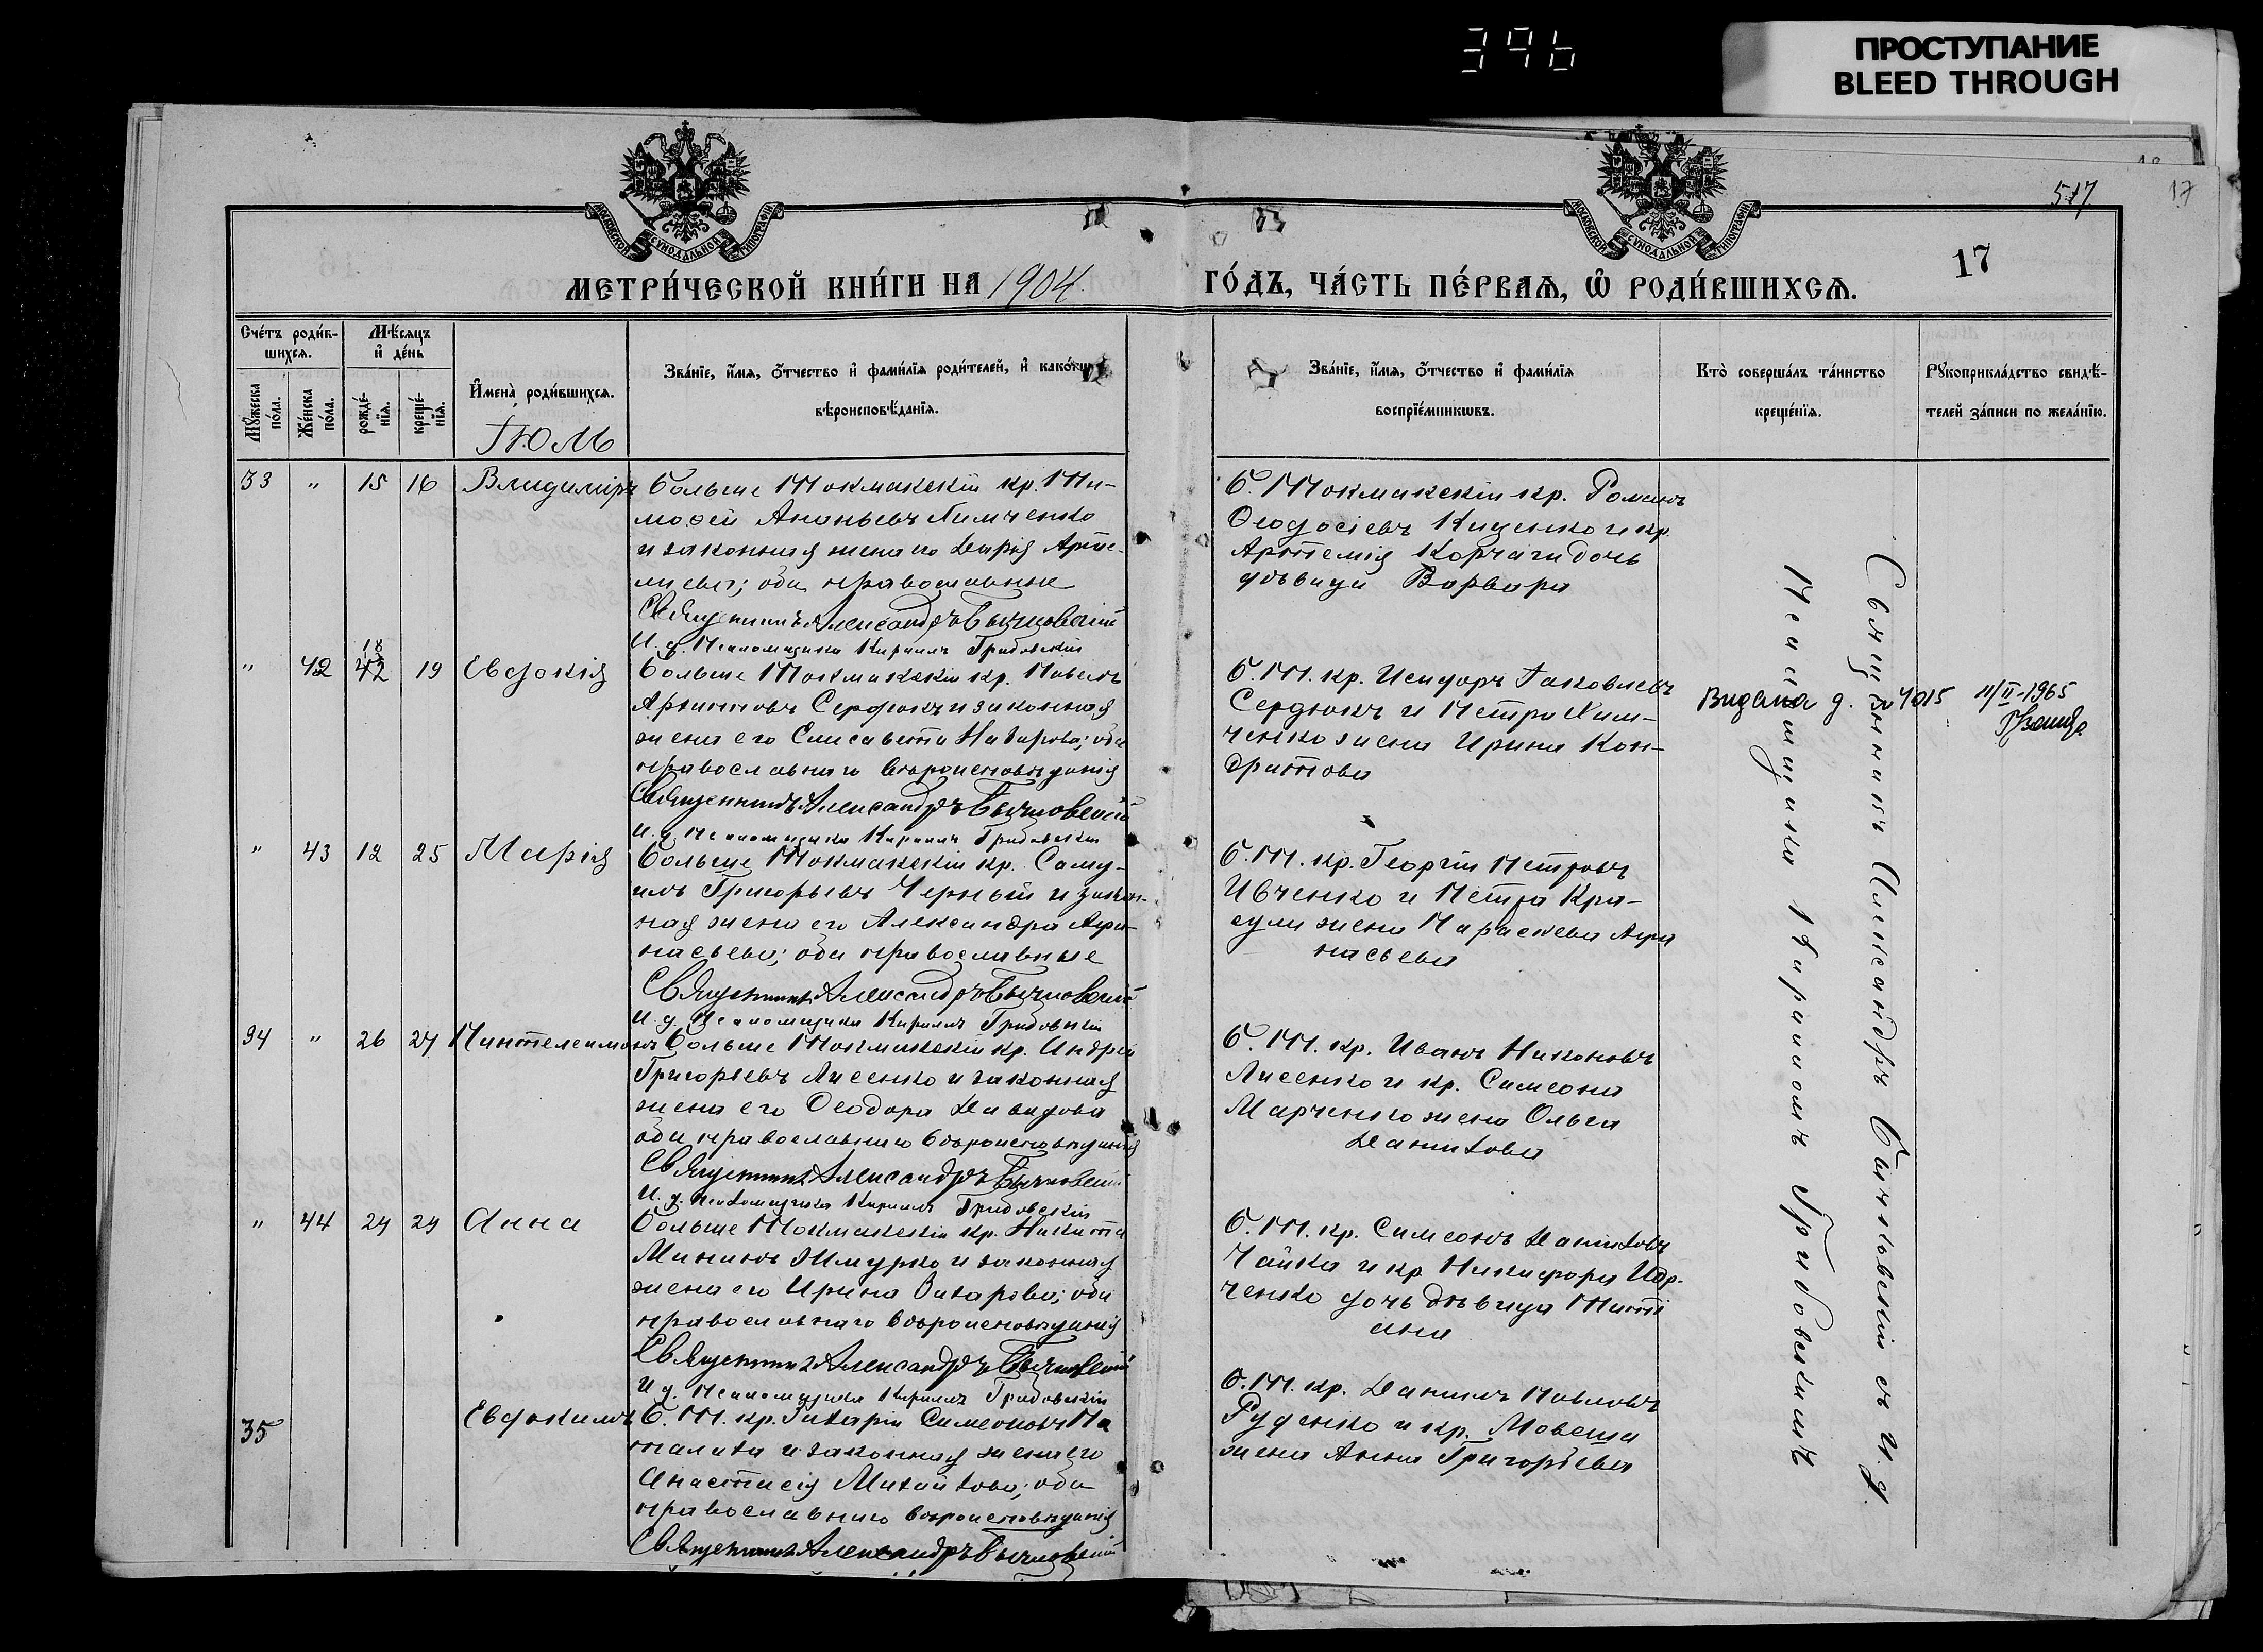 396
ПРОСТУПАНИЕ
BLEED THROUGH
517
17
17
МОСКОВСКОЙ СѴНОДАЛЬНОЙ ТИПОГРАФІИ
МОСКОВСКОЙ СѴНОДАЛЬНОЙ ТИПОГРАФІИ
МЕТРИ́ЧЕСКОЙ КНИ́ГИ НА 1904.
ГО́ДЪ, ЧА́СТЬ ПЕ́РВАѦ, Ѽ РОДИ́ВШИХСѦ.
Сче́тъ роди́в-
шихсѧ.
Мѣ́сѧцъ
и҆ де́нь
Мꙋ́жеска
по́ла.
Же́нска
по́ла.
рожде́-
нїѧ.
креще́-
нїѧ.
И҆мена̀ роди́вшихсѧ.
Зва́нїе, и҆́мѧ, ѻ҆́тчество и҆ фами́лїѧ роди́телей, и҆ како́гѡ
вѣроисповѣ́данїѧ.
Зва́нїе, и҆́мѧ, ѻ҆́тчество и҆ фами́лїѧ
воспрїе́мникѡвъ.
Кто̀ соверша́лъ та́инство
креще́нїѧ.
Рꙋкоприкла́дство свидѣ́-
телей за́писи по жела́нїю.
Іюль
33 " 15 16 Владиміръ
Больше Токмакскій кр. Ти-
моѳей Ананьевъ Химченко
и законная жена его Дарія Арте-
міева; оба православные
Священникъ Александръ Бычковскій
И. д. Псаломщика Кириллъ Грибовскій
Б. Токмакскій кр. Романъ
Ѳеодосіевъ Куценко и кр.
Артемія Корчаги дочь
дѣвица Варвара
" 42 18 42 19 Евдокія
Больше Токмакскій кр. Павелъ
Архиповъ Сердюкъ и законная
жена его Елисавета Назарова; оба
православнаго вѣроисповѣданія
Священникъ Александръ Бычковскій
И. д. Псаломщика Кириллъ Грибовскій
Б. Т. кр. Исидоръ Іаковлевъ
Сердюкъ и Петра Хим-
ченко жена Ирина Кон-
дратова
Видана д. 4015 11/II-1965
" 43 12 25 Марія
Больше Токмакскій кр. Саму-
илъ Григорьевъ Черный и закон-
ная жена его Александра Афа-
насьева; оба православные
Священникъ Александръ Бычковскій
И. д. Псаломщика Кириллъ Грибовскій
Б. Т. кр. Георгій Петровъ
Ивченко и Петра Кра-
сули жена Параскева Афа
насьева
34 " 26 27 Пантелеимонъ
Больше Токмакскій кр. Андрей
Григорьевъ Лисенко и законная
жена его Ѳеодора Давидова
оба православнаго вѣроисповѣданія
Священникъ Александръ Бычковскій
И. д. Псаломщика Кириллъ Грибовскій
Б. Т. кр. Иванъ Никоновъ
Лисенко и кр. Симеона
Марченко жена Ольга
Данилова
" 44 24 29 Анна
Больше Токмакскій кр. Никита
Мининъ Жмурко и законная
жена его Ирина Захарова; оба
православнаго вѣроисповѣданія
Священникъ Александръ Бычковскій
И. д. Псаломщика Кириллъ Грибовскій
Б. Т. кр. Симеонъ Даниловъ
Чайка и кр. Никифора
ченко дочь дѣвица Тати
ана
35 Евдокимъ
Б. Т. кр. Захарій Симеоновъ На
талиха и законная жена его
Анастасія Михайлова; оба
православнаго вѣроисповѣданія
Священникъ Александръ Бычковскій
Б. Т. кр. Даніилъ Павловъ
Руденко и кр. Мовеша
жена Анна Григорьева
Священникъ Александръ Бычковскій съ И. д.
Псаломщика Кирилломъ Грибовскимъ